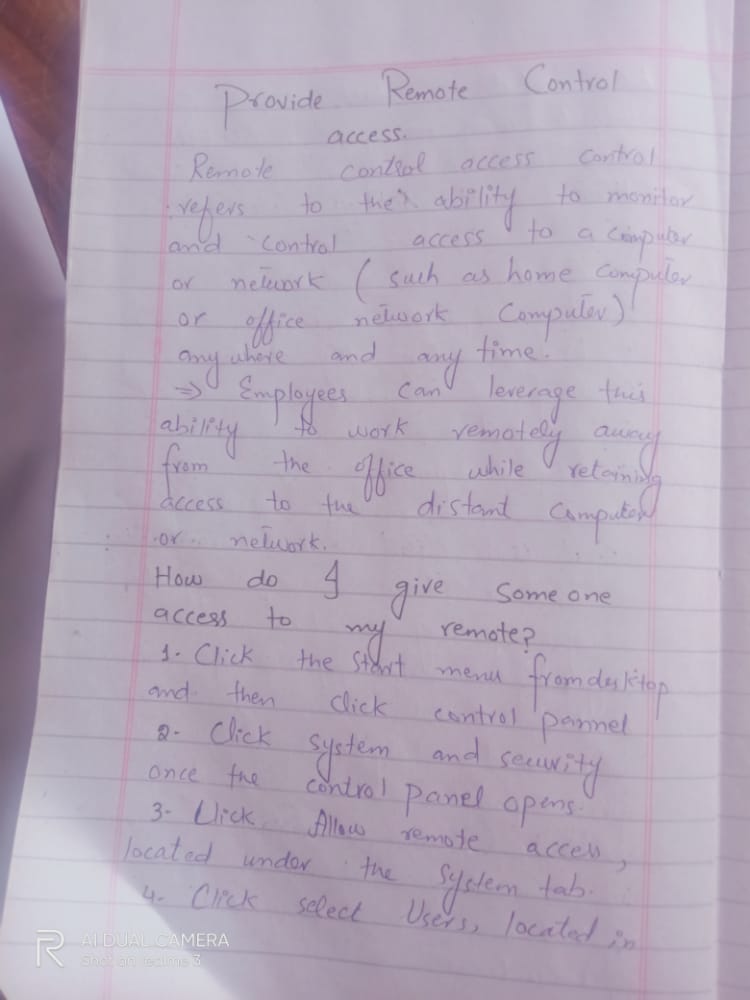 Provide Remote Control
access.
Remote control access control
refers to the ability to monitor
and control access to a computer
or network (such as home computer
or office network Computer)
any where and any time.
⇒ Employees can leverage this
ability to work remotely away
from the office while retaining
access to the distant computer
or network.
How do I give some one
access to my remote?
1- Click the start menu from desktop
and then click control pannel
2- Click system and security
once the control panel opens.
3- Click Allow remote access,
located under the system tab.
4- Click select Users, located in
AI DUAL CAMERA
Shot on realme 3